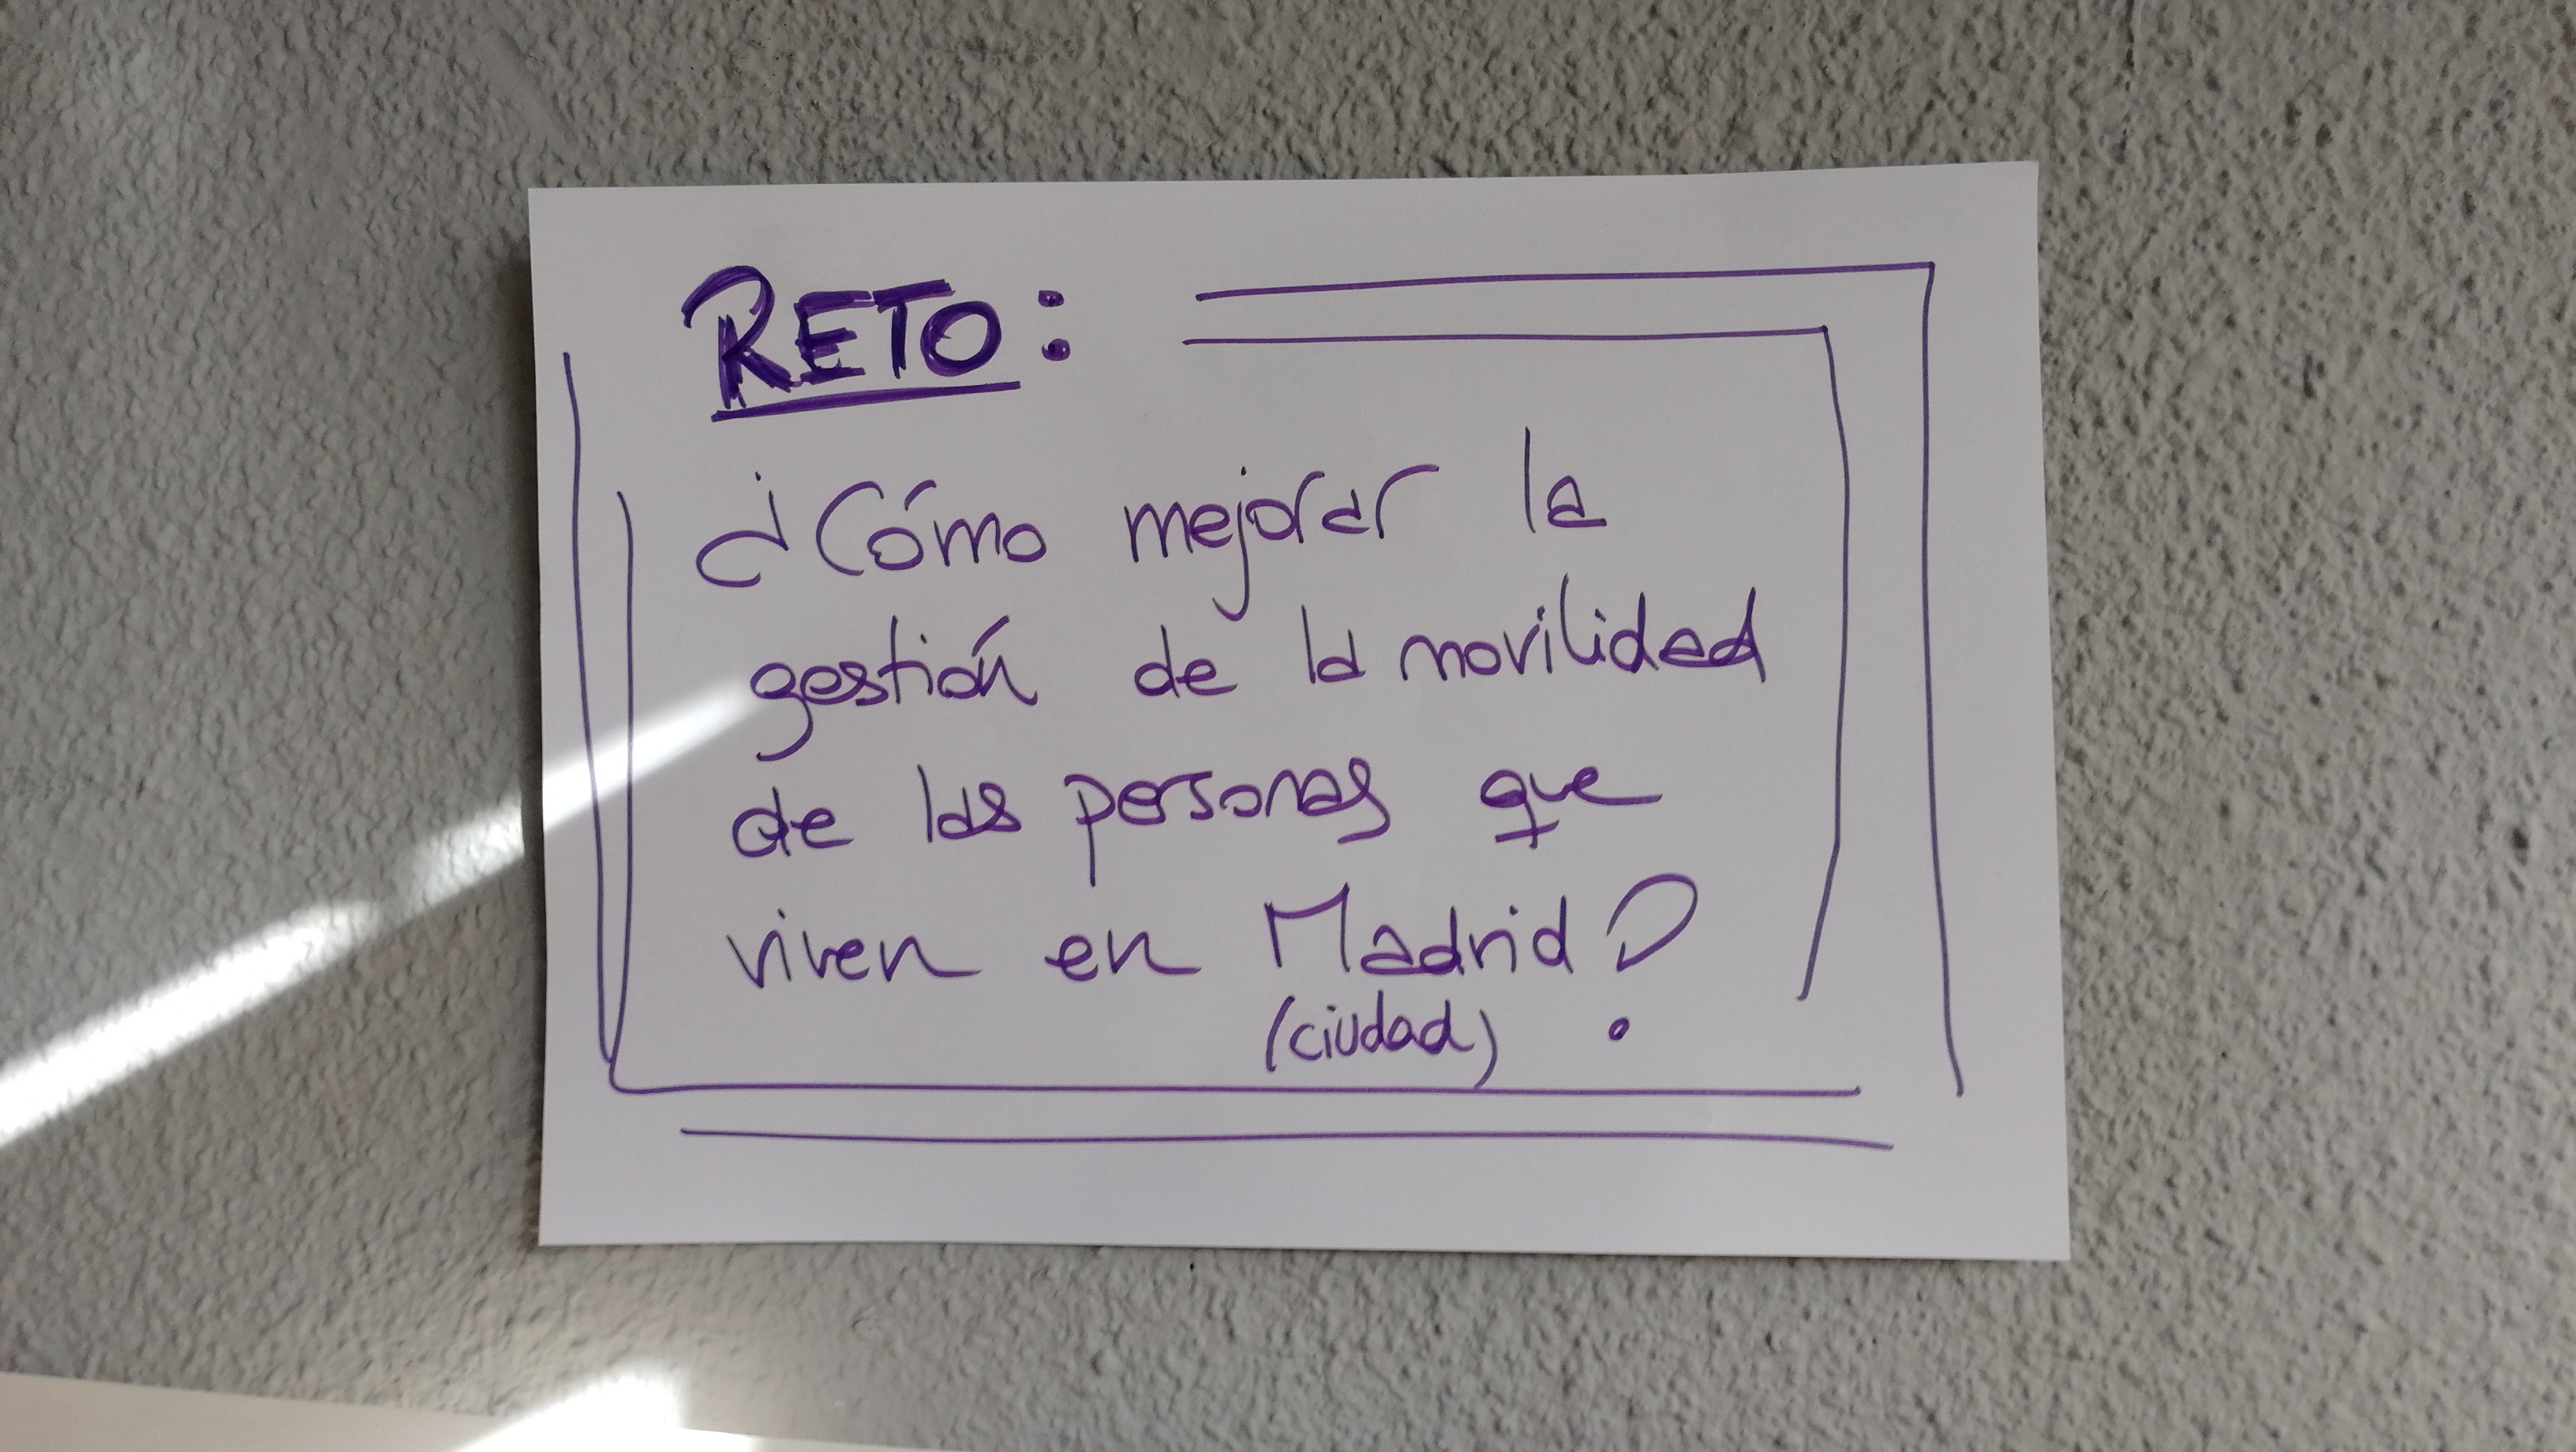 RETO:
¿Cómo mejorar la
gestión de la movilidad
de las personas que
viven en Madrid?
(ciudad)